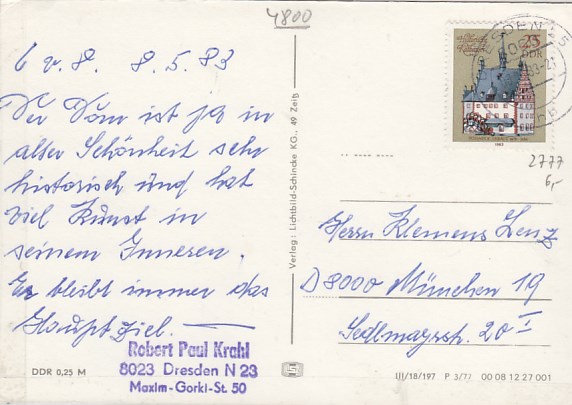 4800
6 v. 8. 8.5.83
Der Dom ist ja in
alter Schönheit sehr
historisch und hat
viel Kunst in
seinem Inneren.
Er bleibt immer das
Hauptziel.
Robert Paul Krahl
8023 Dresden N 23
Maxim-Gorki-St. 50
DDR 0,25 M
Verlag: Lichtbild-Schincke KG., 49 Zeitz
25
DDR
1983
2777
6,-
Herrn Klemens Lenz
D 8000 München 19
Sedlmayrstr. 20 I
III/18/197 P 3/77 00 08 12 27 001